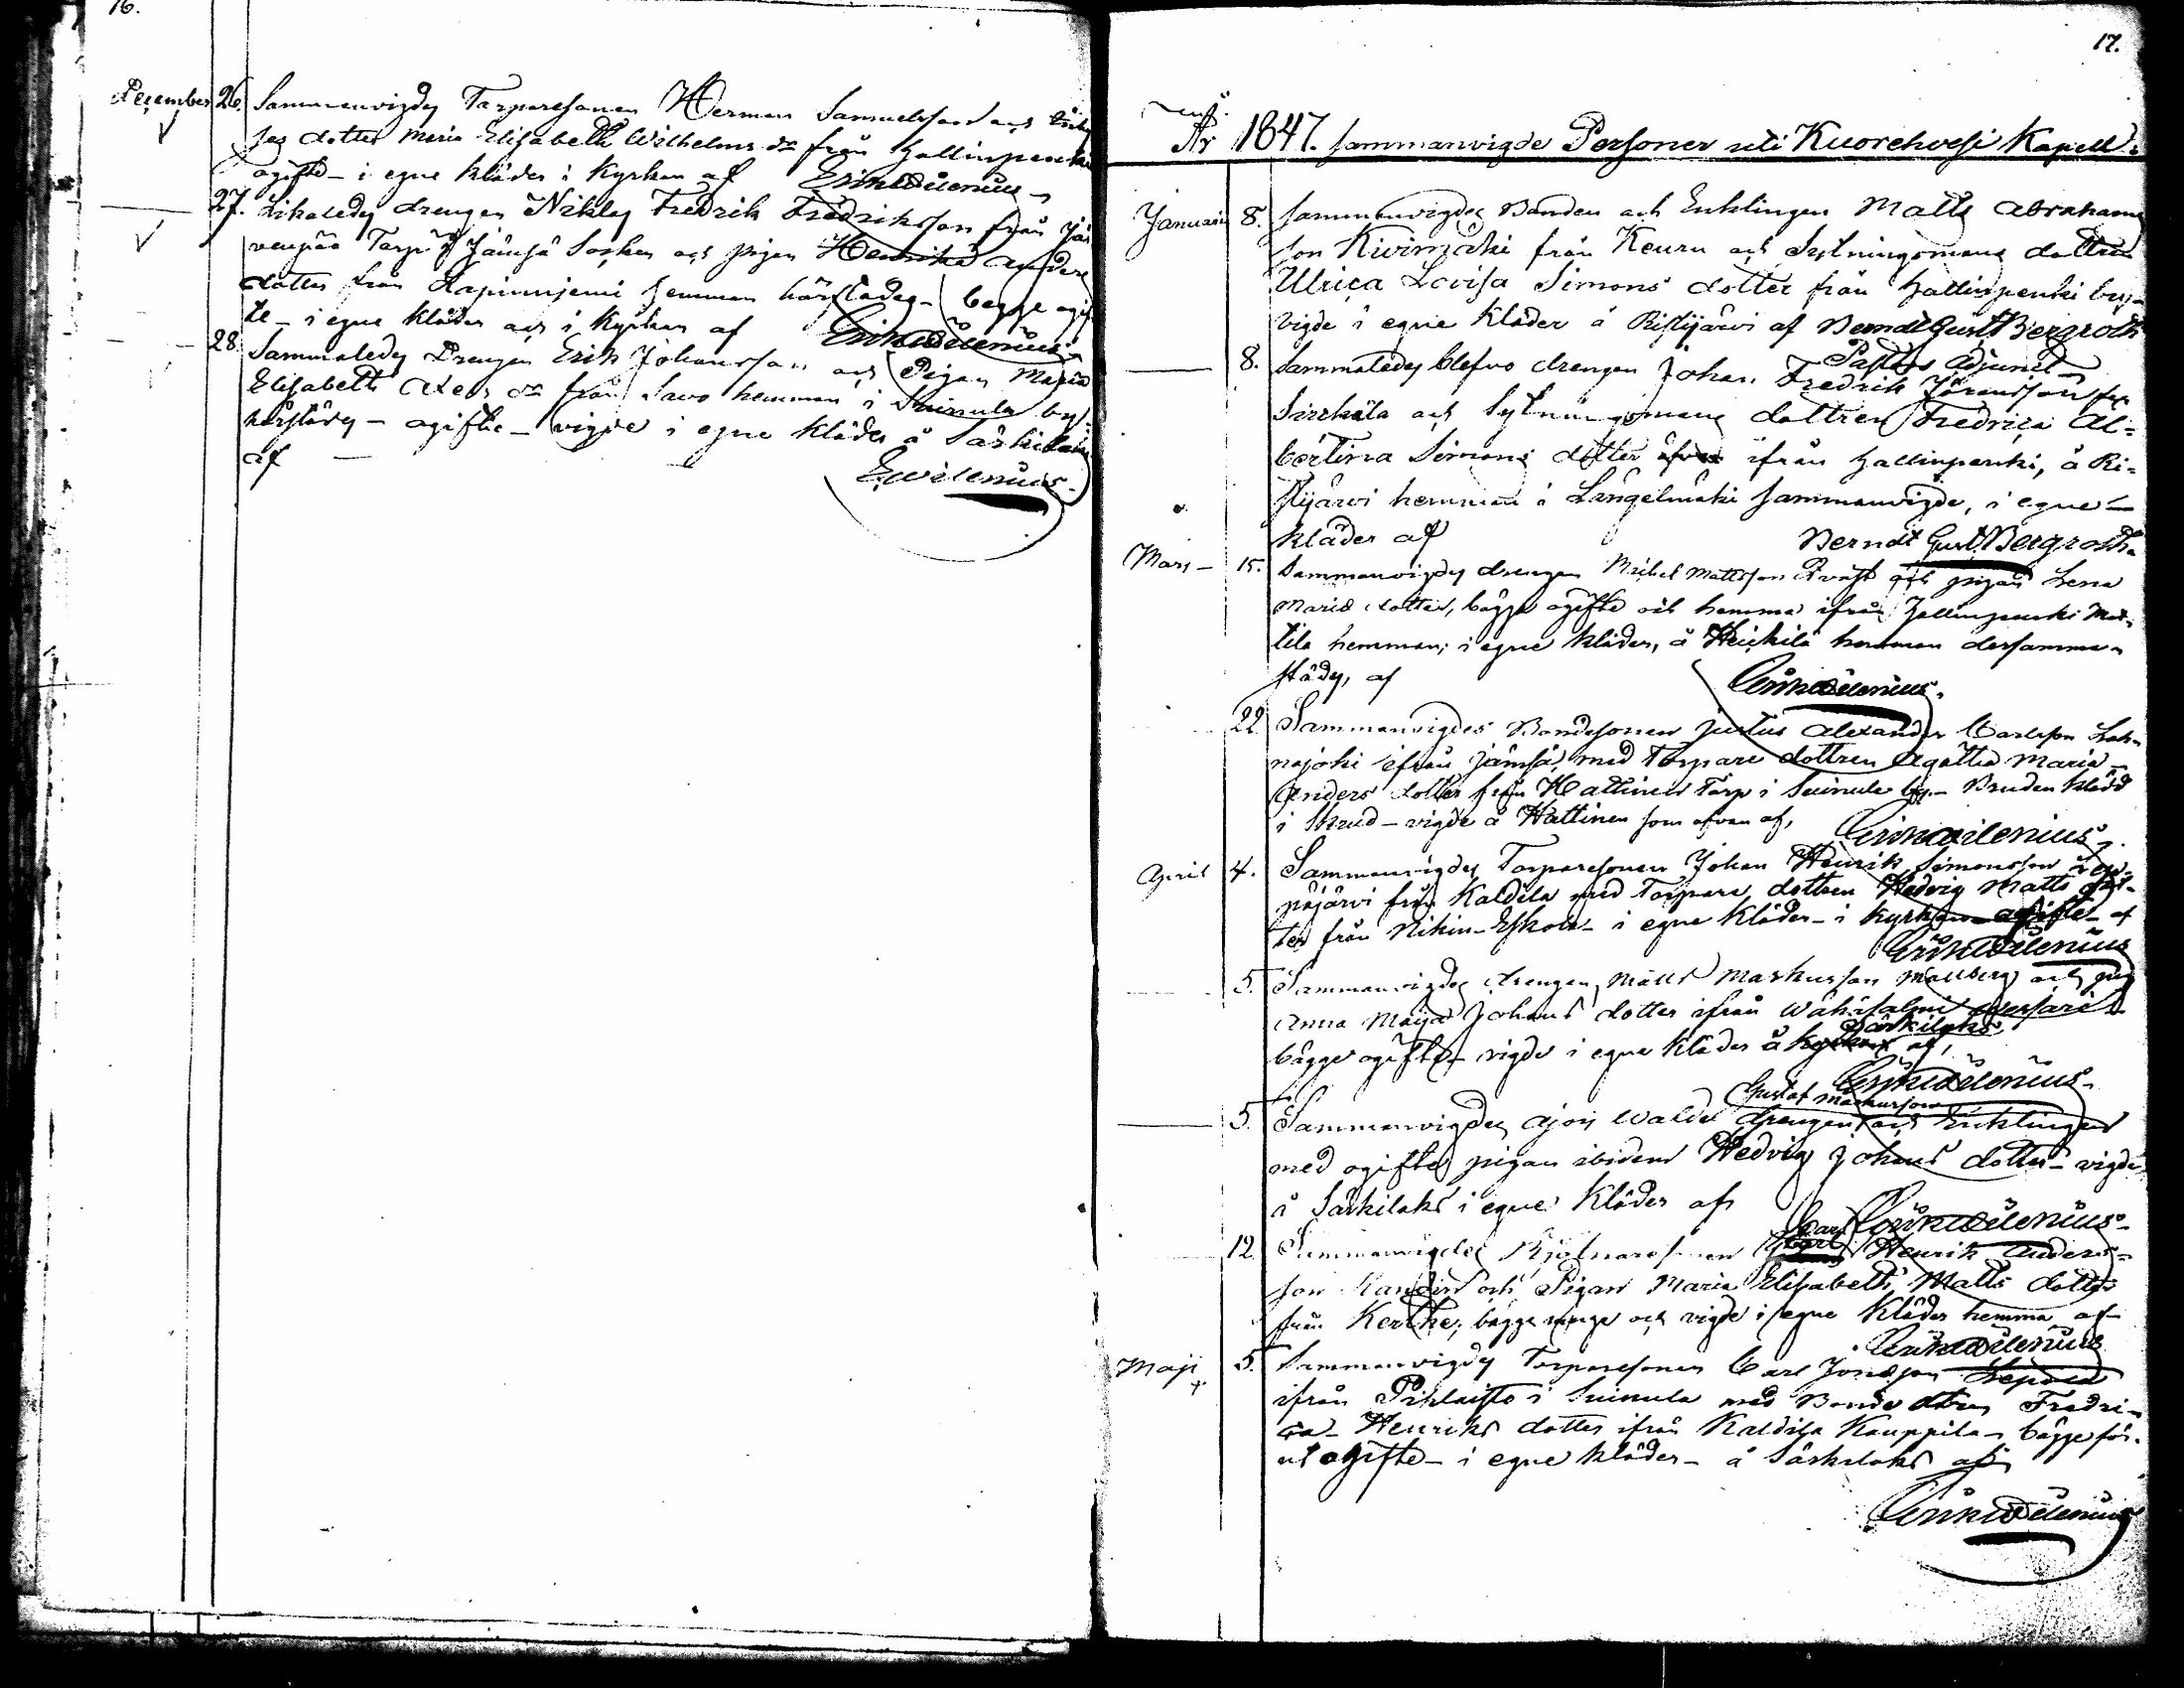 16.
December 26. Sammanvigdes Torparesonen Herman Samuelsson och
dotter Maria Elisabeth Wilhelms dr från Hallinpenki
ogifte - i egne kläder i Kyrkan af Erik Wilenius
27. Likaledes drengen Niklas Fredrik Fredriksson från Jär
venpää Torp i Jämsä Socken och pigan Henrika Anders
dotter från Hapinniemi hemman härstädes - begge ogif
te - i egne kläder och i Kyrkan af Erik Wilenius
28. Sammaledes Drengen Erik Johansson och Pigan Maria
Elisabeth Axels dr från Savo hemman i Suinula by
härstädes - ogifte - vigde i egne kläder å Särkilaks
af
E. Wilenius.
17.
År 1847. sammanvigde Personer uti Kuorehvesi Kapell.
Januarii 8. Sammanvigdes Bonden och Enklingen Matts Abrahams
son Kivimäki från Keuru och Sytningsmans dottren
Ulrica Lovisa Simons dotter från Hallinpenki by,
vigde i egne kläder å Ristijärvi af Berndt Gust. Bergroth
Pastors Adjunct
8. Sammaledes Clefvo drengen Johan Fredrik Jöransson
Sirrkala och Sytningsmans dottren Fredrica Al=
bertina Simons dotter ifrån Hallinpenki, å Ri=
stijärvi hemman i Längelmäki sammanvigde, i egne
kläder af
Berndt Gust. Bergroth.
Mars - 15. Sammanvigdes drengen Michel Mattsson och pigan Lena
Maria dotter, bägge ogifte och hemma ifrån Hallinpenki Mat=
tila hemman; i egne kläder, å Heickilä hemman dersamma=
städes, af
Erik Wilenius.
22. Sammanvigdes Bondesonen Justus Alexander Carlsson Lah=
najoki ifrån Jämsä, med Torpare dottren Agatha Maria
Anders dotter från Hattinen Torp i Suinula by. - Bruden klädd
i Skrud - vigde å Hattinen som ofvan af,
Erik Wilenius.
April 4. Sammanvigdes Torparesonen Johan Henrik Simonsson Lep=
päjärvi från Kaldila med Torpare dottren Hedvig Matts dot=
ter från Nikin-Eskola - i egne kläder - i kyrkan - ogifte - af
Erik Wilenius
5. Sammanvigdes drengen Matts Markusson Mallberg och pig
Anna Maija Johans dotter ifrån Wähäsalmi
Särkilaks
bägge ogifte - vigde i egne kläder å af,
Erik Wilenius.
Gustaf Markusson
5. Sammanvigdes Ajos Walde drengen och Enklingen
med ogifte pigan ibidem Hedvig Johans dotter - vigde
å Särkilaks i egne kläder af
Erik Wilenius.
Carl
12. Sammanvigdes Mjölnaresonen Henrik Anders=
son Randin och Pigan Maria Elisabeth Matts dotter
från Kerthe; bägge unge och vigde i egne kläder hemma af
Erik Wilenius
Maji 5. Sammanvigdes Torparesonen Carl Jonasson Lepola
ifrån Pihlaisto i Suinula med Bonde dtren Fredri=
ca Henriks dotter ifrån Kaldila Kauppila - bägge för=
ut ogifte - i egne kläder - å Särkilaks af
Erik Wilenius